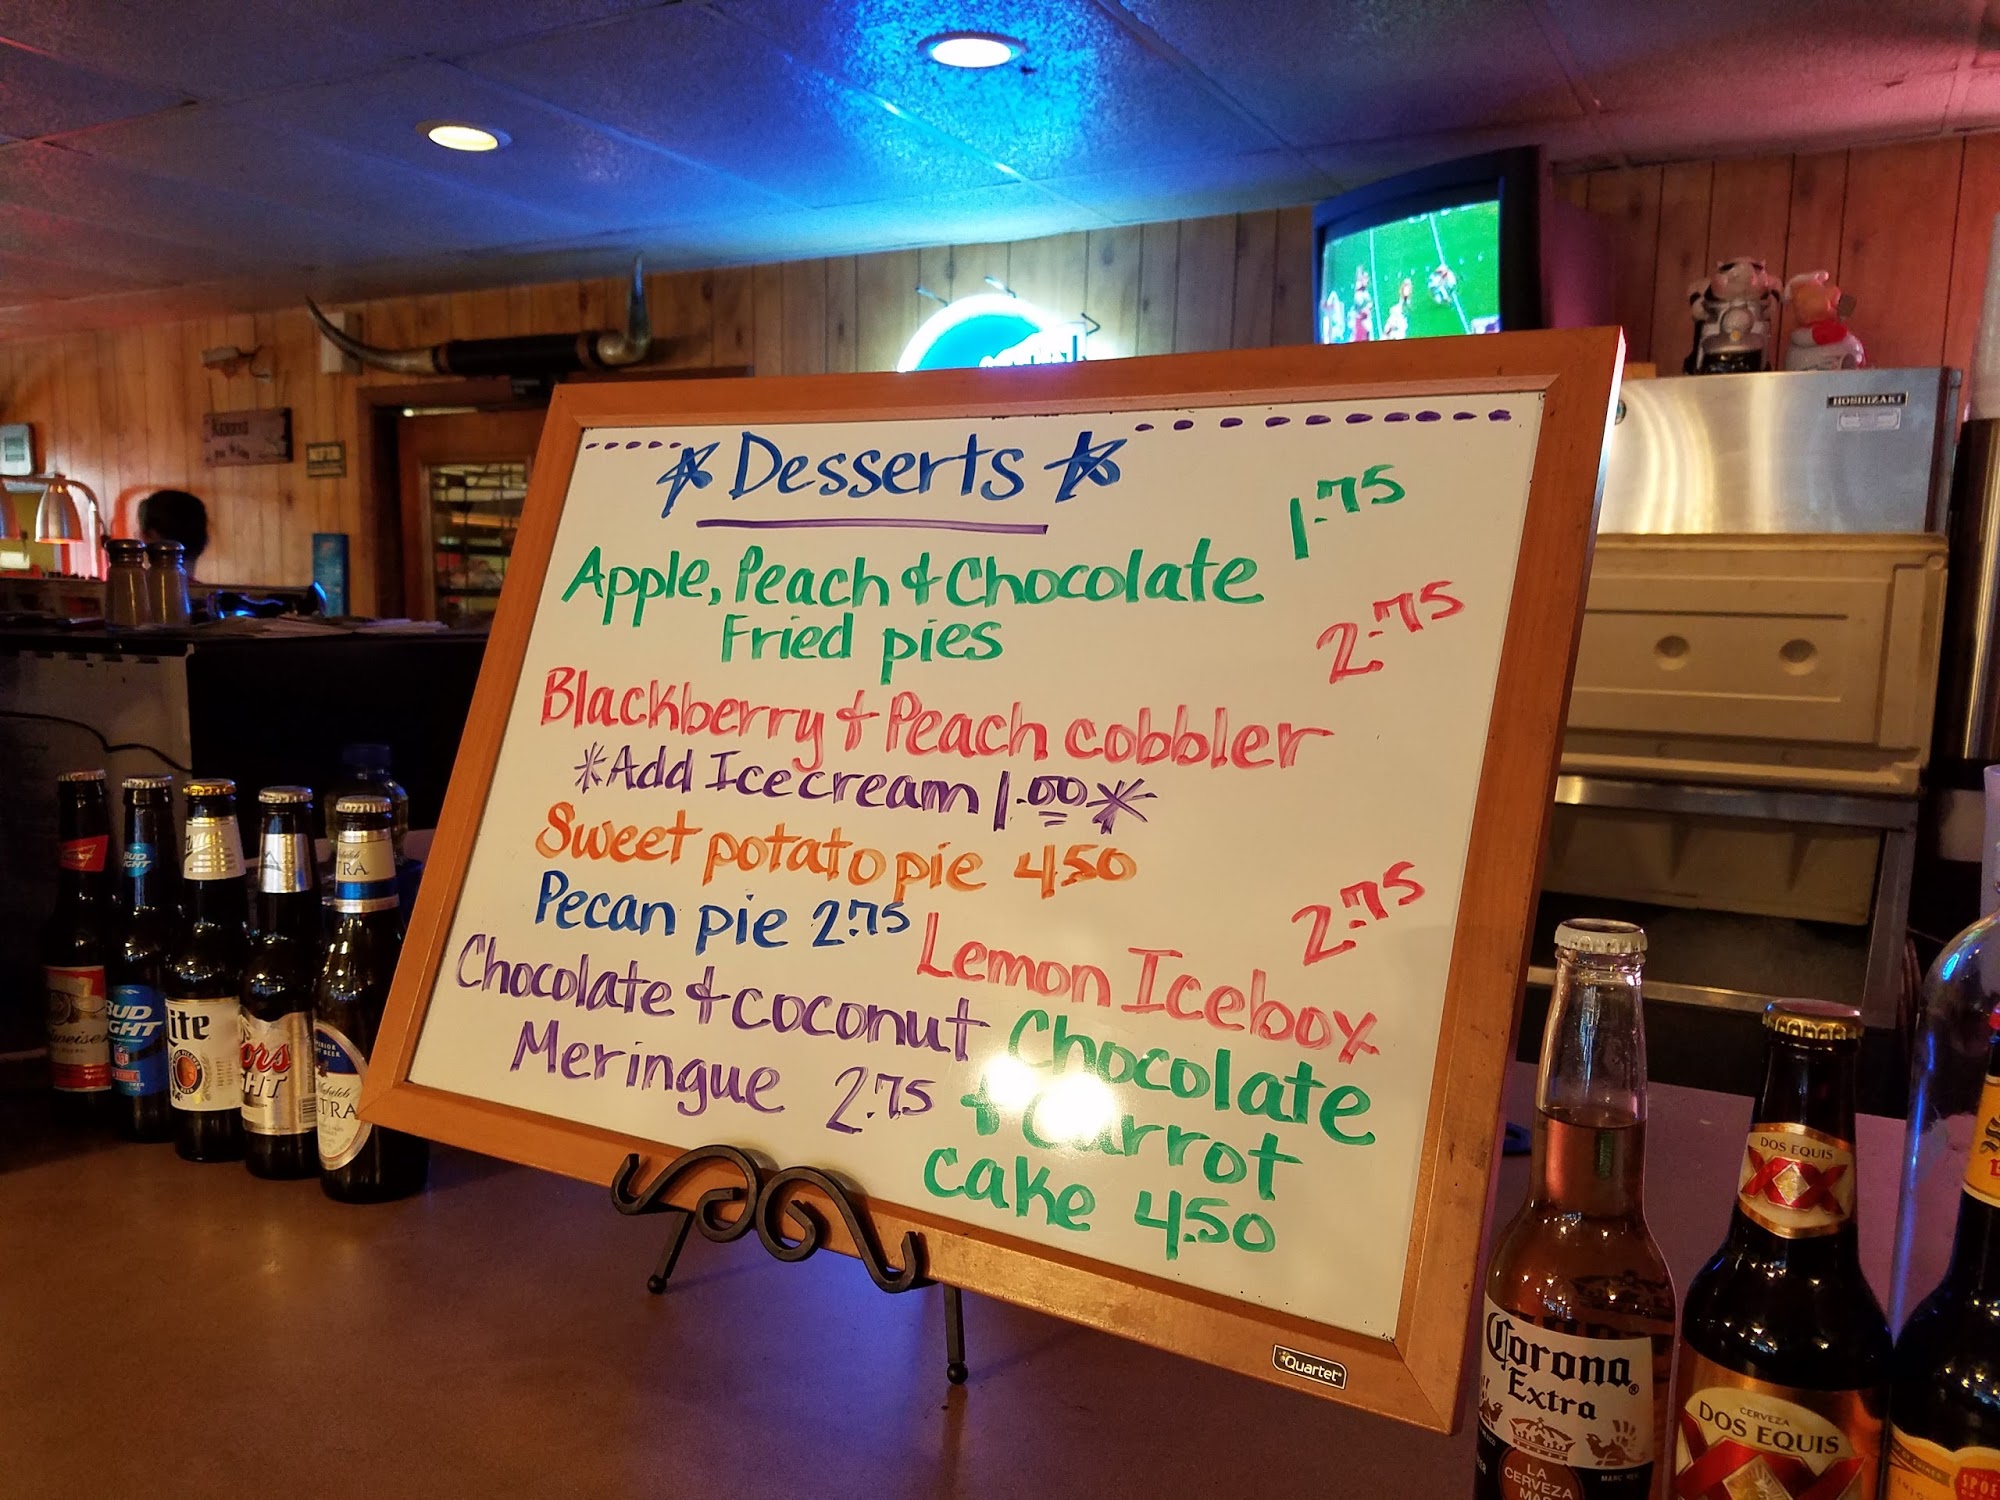 Desserts
Apple, Peach & Chocolate 1.75
Fried pies
Blackberry & Peach cobbler 2.75
*Add Ice cream 1.00*
Sweet potato pie 4.50
Pecan pie 2.75
Lemon Icebox 2.75
Chocolate & coconut
Meringue 2.75
Chocolate
& Carrot
cake 4.50
Quartet
HOSHIZAKI
BUD
LIGHT
BUD
LIGHT
Lite
Coors
LIGHT
ULTRA
Corona
Extra
LA
CERVEZA
DOS EQUIS
XX
CERVEZA
DOS EQUIS